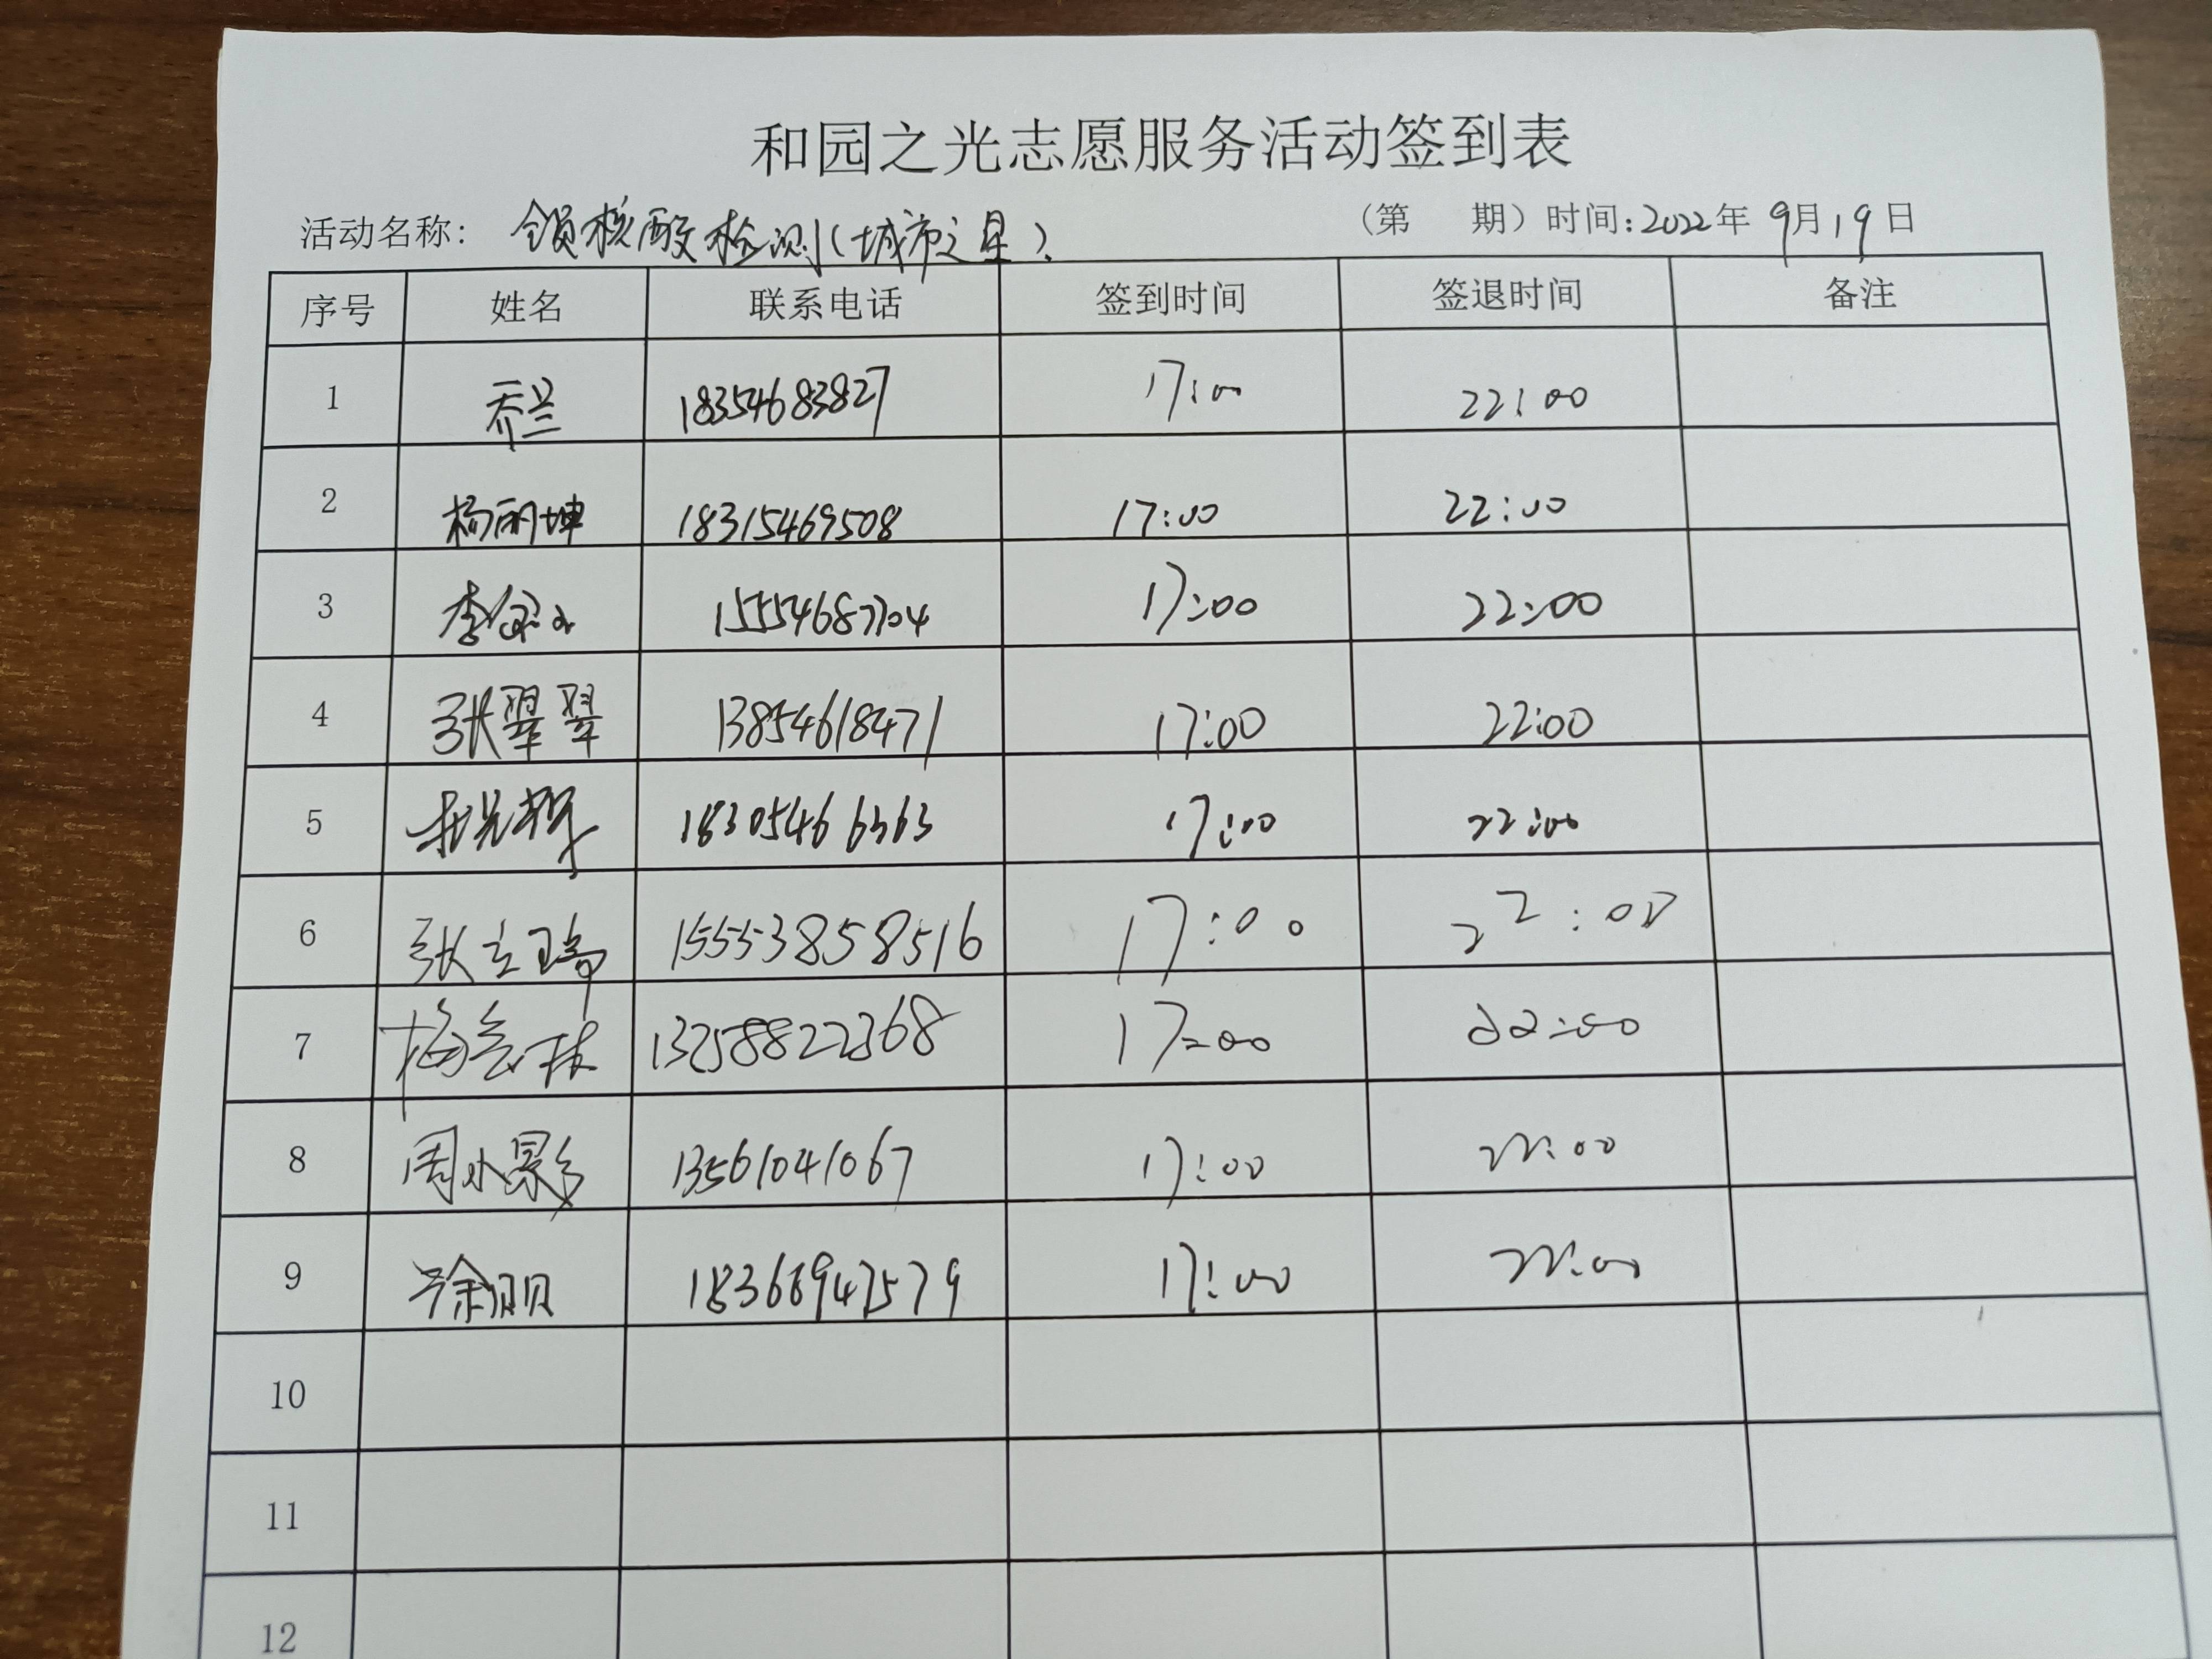 和园之光志愿服务活动签到表
活动名称: 全员核酸检测(城市之星). (第 期) 时间:2022年 9月19日
序号 姓名 联系电话 签到时间 签退时间 备注
1 乔兰 18354683827 17:00 22:00
2 杨丽坤 18315469508 17:00 22:00
3 李 15554687704 17:00 22:00
4 张翠翠 13854618471 17:00 22:00
5 18305466363 17:00 22:00
6 张立瑞 15553858516 17:00 22:00
7 梅 林 13258822368 17:00 22:00
8 周小影 13561041067 17:00 22:00
9 徐丽 18366947579 17:00 22:00
10
11
12